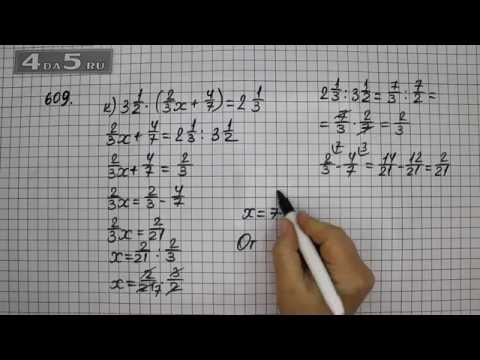 4DA5.RU
609.
к) 3 1/2 · (2/3 x + 4/7) = 2 1/3
2/3 x + 4/7 = 2 1/3 : 3 1/2
2/3 x + 4/7 = 2/3
2/3 x = 2/3 - 4/7
2/3 x = 2/21
x = 2/21 : 2/3
x = 2/21 7 · 3/2
2 1/3 : 3 1/2 = 7/3 : 7/2 =
= 7/3 · 2/7 = 2/3
2/3 \7 - 4/7 \3 = 14/21 - 12/21 = 2/21
x =
От